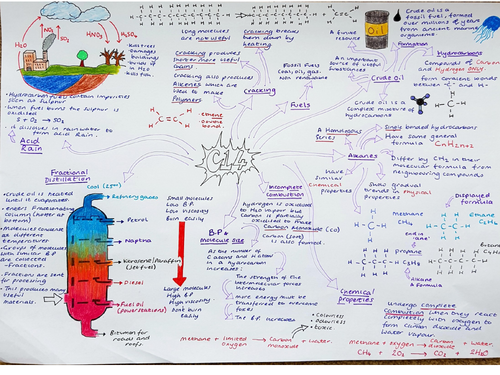 H₂O
NO₂
SO₂
HNO₃
H₂SO₄
Kills trees
damages
buildings
Hydrocarbon fuels contain impurities
such as sulphur
When fuel burns the sulphur is
oxidised
S + O₂ → SO₂
it dissolves in rainwater to
form acid rain
Acid
Rain
Long molecules
are not useful
Cracking breaks
them down by
heating
Cracking produces
shorter more useful
chains
Cracking also produces
Alkenes which are
used to make
Polymers
Cracking
ethene
double
bond.
C=C
Fossil Fuels
Coal, oil, gas.
Non renewable
Fuels
A finite
resource
An important
source of useful
substances
Oil
Crude oil is a
fossil fuel, formed
over millions of years
from ancient marine
organisms
Formation
Crude oil
Crude oil is a
complex mixture of
hydrocarbons
Hydrocarbons
Compounds of Carbon
and Hydrogen only
form covalent bonds
between C and H
C14
A Homologous
Series
Single bonded hydrocarbons
Have same general
formula CnH2n+2
Alkanes
Differ by CH₂ in their
molecular formula from
neighbouring compounds
Have
Similar
Chemical
properties
Show gradual
trends in Physical
properties
Displayed
formula
methane
CH₄
ethane
end in
'ane'
propane
Alkane
Formula
Chemical
properties
Undergo complete
Combustion when they react
completely with oxygen to
form carbon dioxide and
water vapour
Methane + oxygen → Carbon dioxide + water
CH₄ + 2O₂ → CO₂ + 2H₂O
Incomplete
Combustion
hydrogen is oxidised
to H₂O vapour but
Carbon is partially
oxidised to make
Carbon monoxide (CO)
Carbon (soot)
is also formed
Colourless
Odourless
toxic
Methane + limited oxygen → Carbon monoxide + water.
BP &
molecule size
As the number
of C atoms and H atoms
in a hydrocarbon
increases
The strength of the
intermolecular forces
increases
More energy must be
transferred to overcome
forces
The BP increases
Fractional
Distillation
Cool (25°C)
Crude oil is heated
until it evaporates
enters fractionating
column (hotter at
bottom)
Molecules condense
at different
temperatures
Groups of molecules
with similar BP
are collected
fractions
Fractions are sent for
processing
This produces many
useful
materials
Refinery gases
Petrol
Naptha
Kerosene/Paraffin
(jet fuel)
Diesel
Fuel oil
(power stations)
Bitumen for
roads and
roofs.
Small molecules
Low BP
Low viscosity
burn easily
Large molecules
High BP
High viscosity
Dont burn
easily